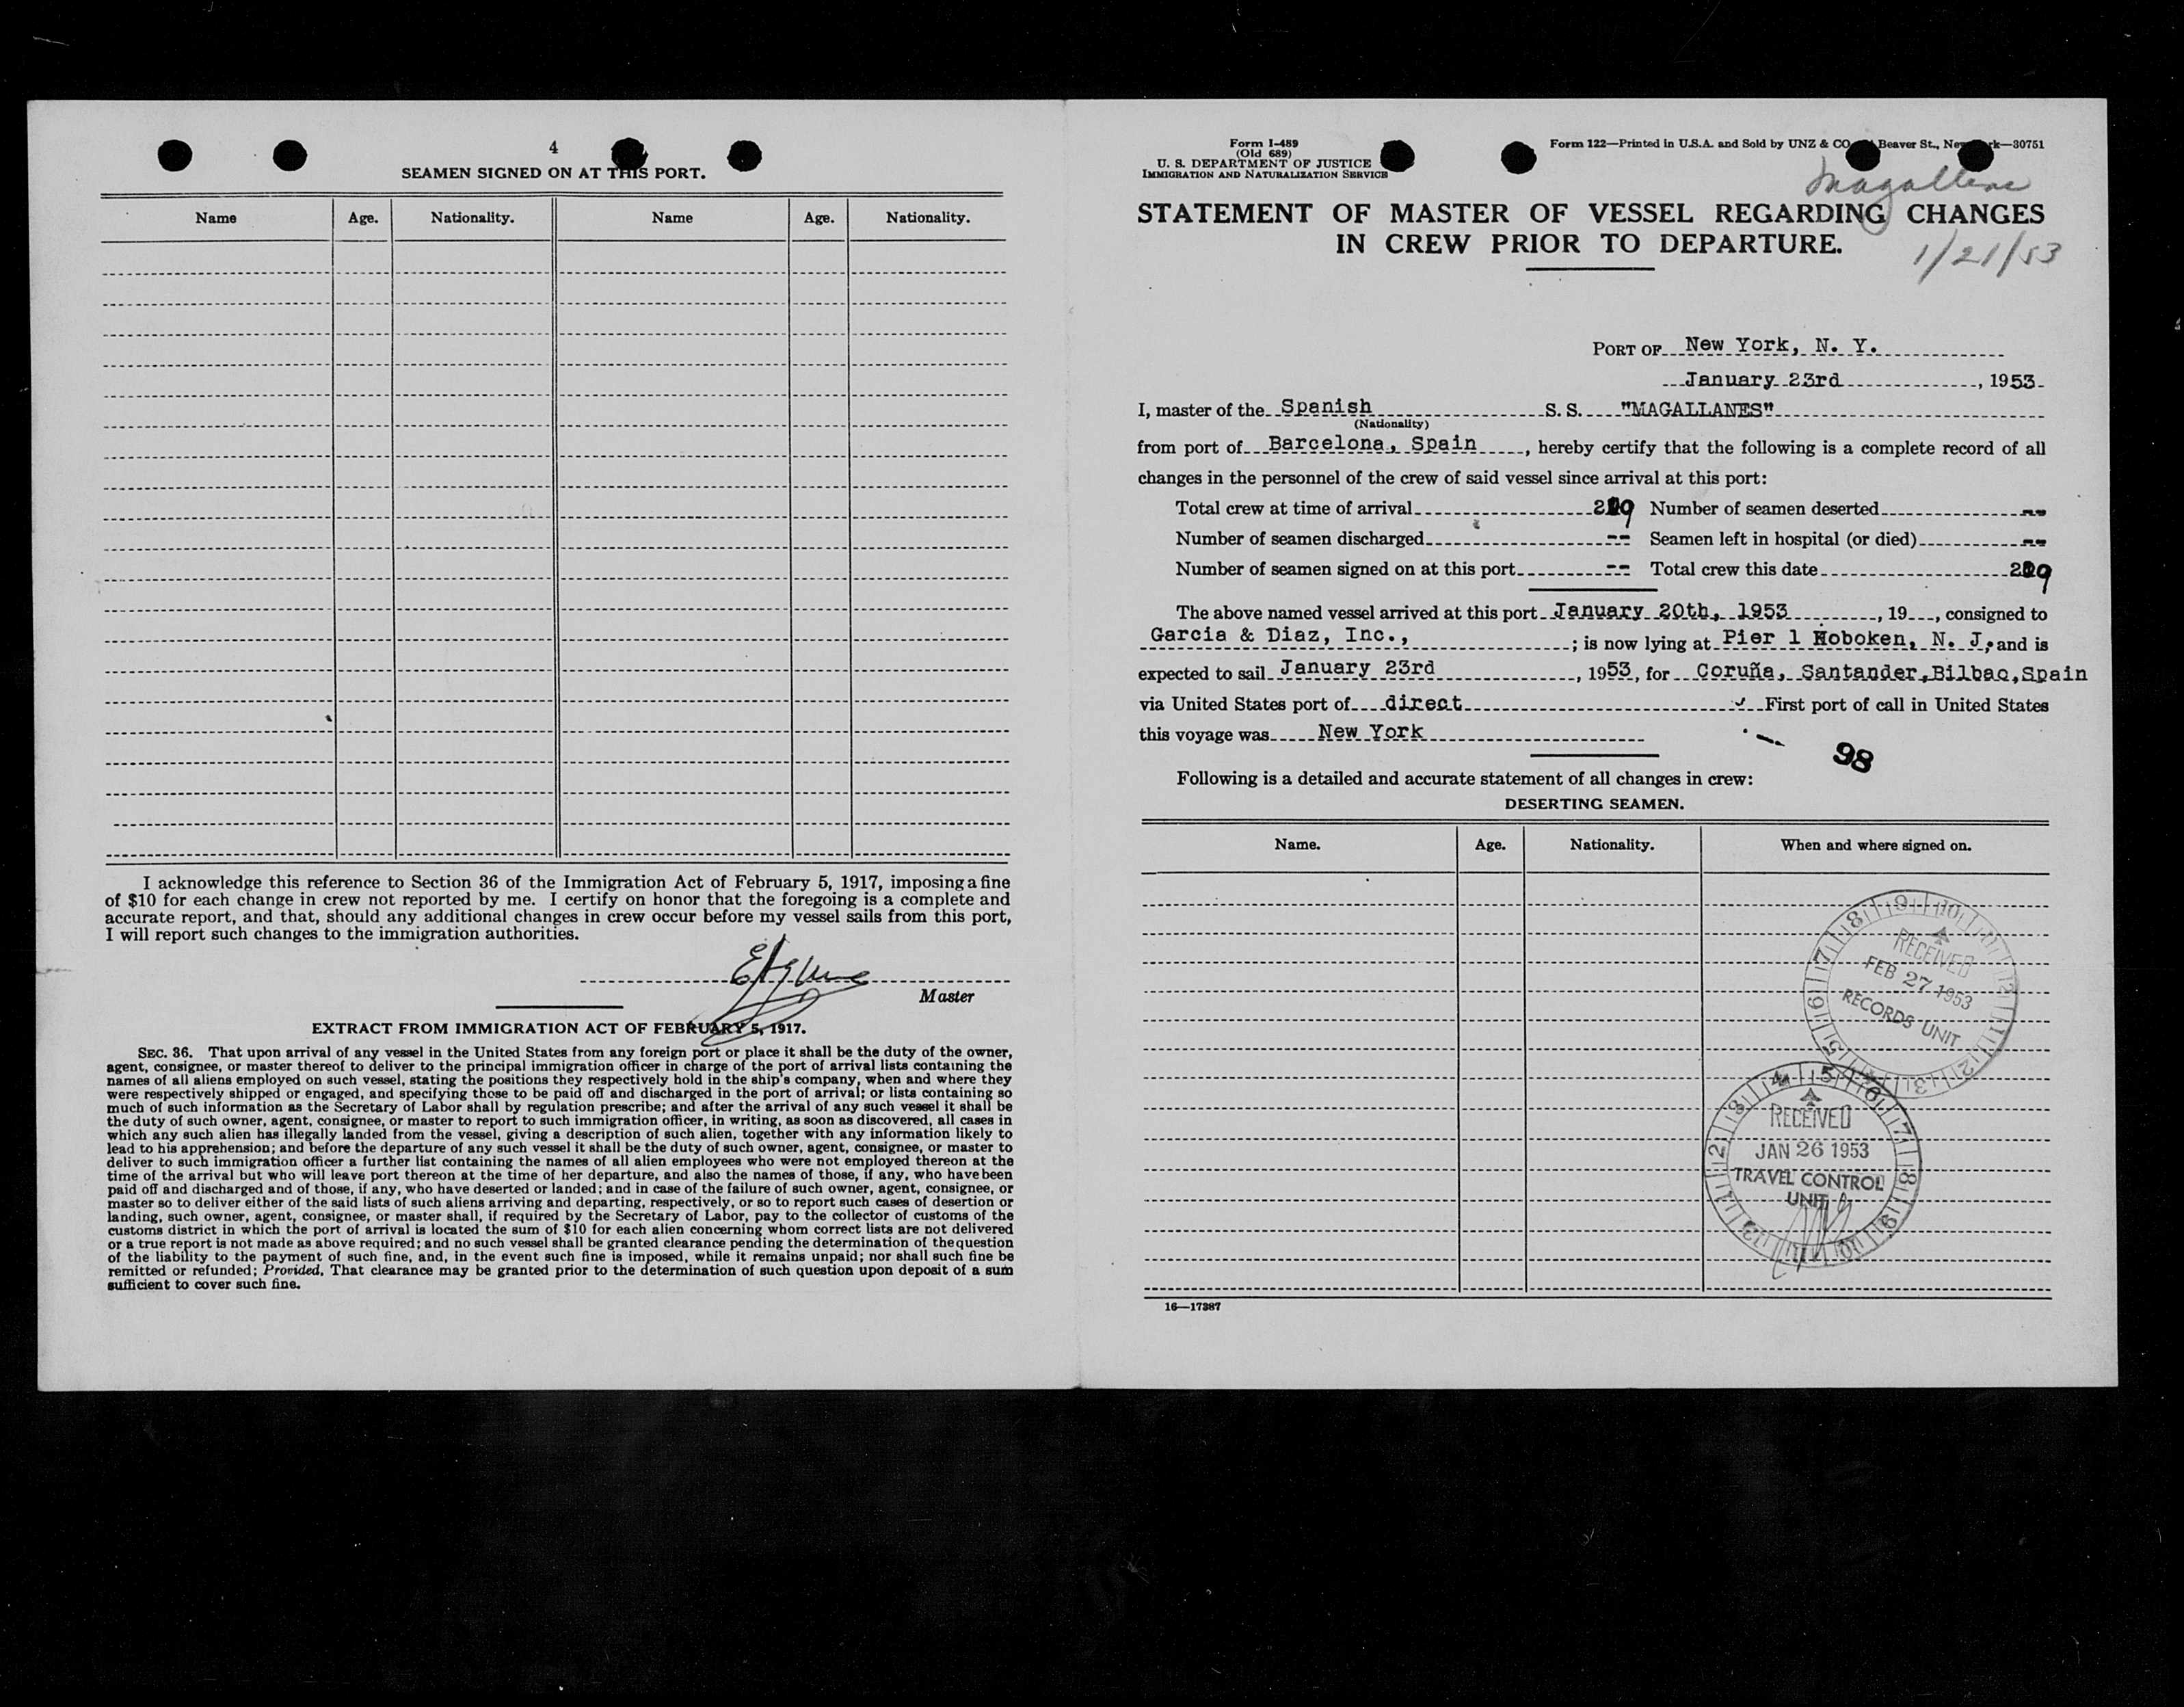 4
SEAMEN SIGNED ON AT THIS PORT.
Name Age. Nationality. Name Age. Nationality.
I acknowledge this reference to Section 36 of the Immigration Act of February 5, 1917, imposing a fine
of $10 for each change in crew not reported by me. I certify on honor that the foregoing is a complete and
accurate report, and that, should any additional changes in crew occur before my vessel sails from this port,
I will report such changes to the immigration authorities.
Master
EXTRACT FROM IMMIGRATION ACT OF FEBRUARY 5, 1917.
SEC. 36. That upon arrival of any vessel in the United States from any foreign port or place it shall be the duty of the owner,
agent, consignee, or master thereof to deliver to the principal immigration officer in charge of the port of arrival lists containing the
names of all aliens employed on such vessel, stating the positions they respectively hold in the ship's company, when and where they
were respectively shipped or engaged, and specifying those to be paid off and discharged in the port of arrival; or lists containing so
much of such information as the Secretary of Labor shall by regulation prescribe; and after the arrival of any such vessel it shall be
the duty of such owner, agent, consignee, or master to report to such immigration officer, in writing, as soon as discovered, all cases in
which any such alien has illegally landed from the vessel, giving a description of such alien, together with any information likely to
lead to his apprehension; and before the departure of any such vessel it shall be the duty of such owner, agent, consignee, or master to
deliver to such immigration officer a further list containing the names of all alien employees who were not employed thereon at the
time of the arrival but who will leave port thereon at the time of her departure, and also the names of those, if any, who have been
paid off and discharged and of those, if any, who have deserted or landed; and in case of the failure of such owner, agent, consignee, or
master so to deliver either of the said lists of such aliens arriving and departing, respectively, or so to report such cases of desertion or
landing, such owner, agent, consignee, or master shall, if required by the Secretary of Labor, pay to the collector of customs of the
customs district in which the port of arrival is located the sum of $10 for each alien concerning whom correct lists are not delivered
or a true report is not made as above required; and no such vessel shall be granted clearance pending the determination of the question
of the liability to the payment of such fine, and, in the event such fine is imposed, while it remains unpaid; nor shall such fine be
remitted or refunded; Provided, That clearance may be granted prior to the determination of such question upon deposit of a sum
sufficient to cover such fine.
Form I-489
(Old 689)
U. S. DEPARTMENT OF JUSTICE
IMMIGRATION AND NATURALIZATION SERVICE
Form 122—Printed in U.S.A. and Sold by UNZ & CO Beaver St., New York—30751
STATEMENT OF MASTER OF VESSEL REGARDING CHANGES
IN CREW PRIOR TO DEPARTURE.
1/21/53
PORT OF New York, N. Y.
January 23rd, 1953
I, master of the Spanish S. S. "MAGALLANES"
(Nationality)
from port of Barcelona, Spain, hereby certify that the following is a complete record of all
changes in the personnel of the crew of said vessel since arrival at this port:
Total crew at time of arrival Number of seamen deserted --
Number of seamen discharged -- Seamen left in hospital (or died) --
Number of seamen signed on at this port -- Total crew this date
The above named vessel arrived at this port January 20th, 1953, 19, consigned to
Garcia & Diaz, Inc., ; is now lying at Pier 1 Hoboken, N. J, and is
expected to sail January 23rd, 1953, for Coruña, Santander, Bilbao, Spain
via United States port of direct First port of call in United States
this voyage was New York
98
Following is a detailed and accurate statement of all changes in crew:
DESERTING SEAMEN.
Name. Age. Nationality. When and where signed on.
RECEIVED
FEB 27 1953
RECORDS UNIT
RECEIVED
JAN 26 1953
TRAVEL CONTROL
UNIT
16—17387